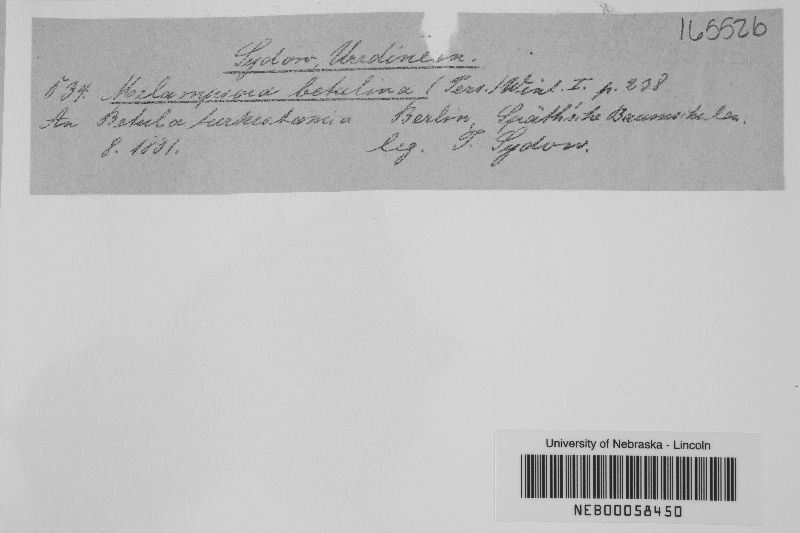 165526
Sydow, Uredineen.
539. Melampsora betulina (Pers.) Wint. I. p. 238
An Betula turkestanica Berlin, Späth'sche Baumschulen.
8. 1891. leg. P. Sydow.
University of Nebraska - Lincoln
NEB00058450